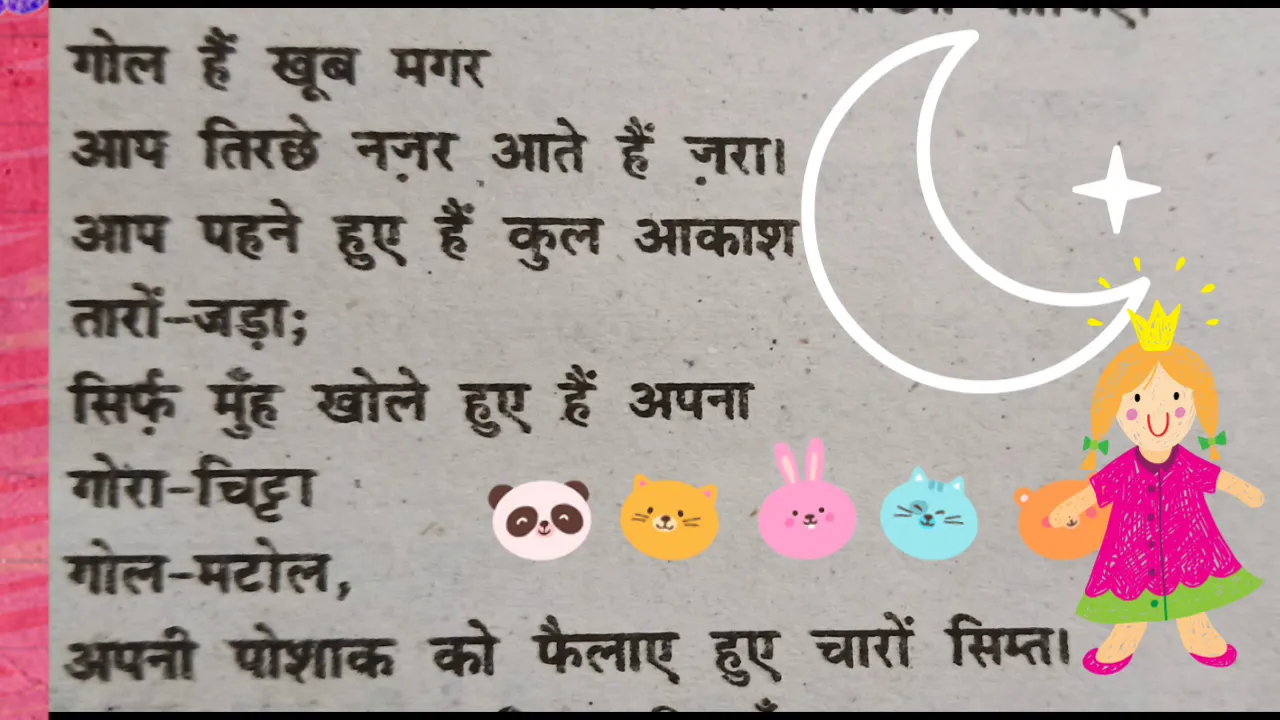 गोल हैं खूब मगर
आप तिरछे नज़र आते हैं ज़रा।
आप पहने हुए हैं कुल आकाश
तारों-जड़ा;
सिर्फ़ मुँह खोले हुए हैं अपना
गोरा-चिट्टा
गोल-मटोल,
अपनी पोशाक को फैलाए हुए चारों सिम्त।